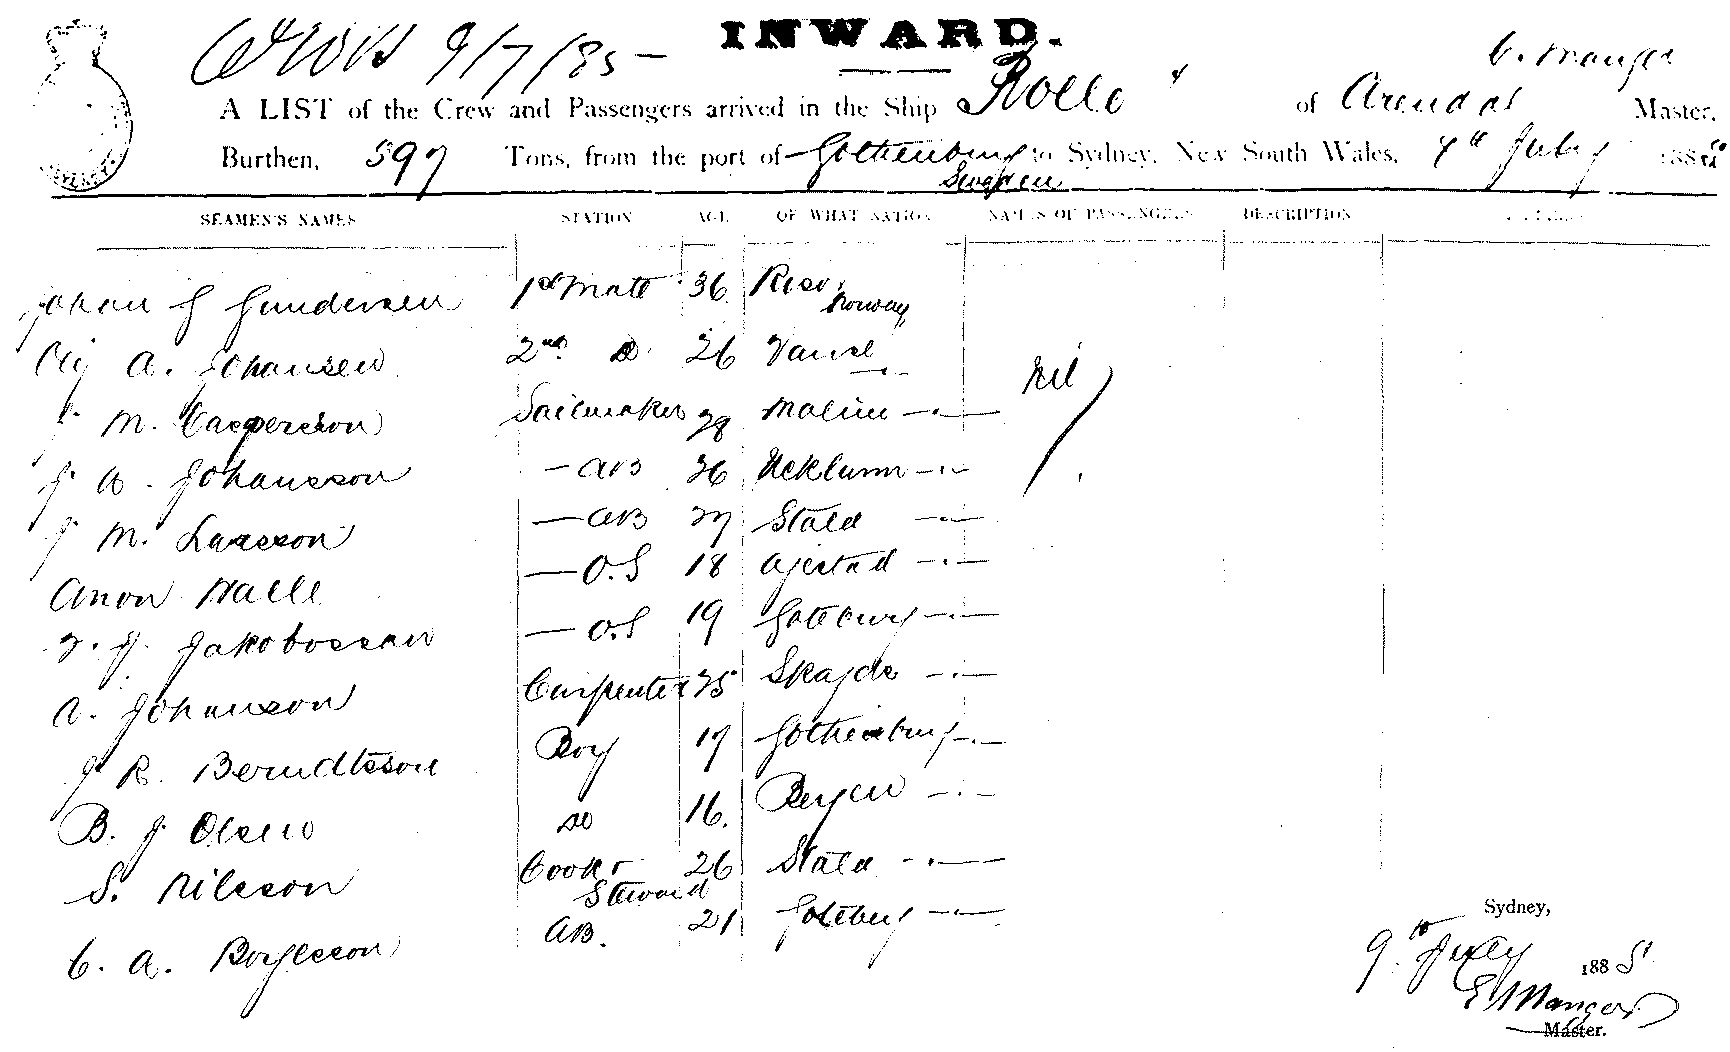 INWARD.
9/7/85 -
A LIST of the Crew and Passengers arrived in the Ship Rollo of Arendal C. Manger Master,
Burthen, 597 Tons, from the port of Gothenburg Sweden to Sydney, New South Wales, 7th July 1885
SEAMEN'S NAMES STATION AGE OF WHAT NATION NAMES OF PASSENGERS DESCRIPTION
Johan G Gundersen 1st Mate 36 Risør, Norway
A. Johansen 2nd D. 26 Vanse —"—
J M. Casperson Sailmaker 28 —"— Nil
J A. Johansson — AB 36 —"—
J M. Larsson — AB 27 Stala —"—
Anon Halle — O.S 18 Ajestad —"—
J. Jakobossan — O.S 19 Goteburg —"—
A. Johanson Carpenter 35 —"—
J R. Berndtsson Boy 17 Gothenburg —"—
B. J Olsen do 16. Bergen —"—
S. Nilsson Cook & Steward 26 Stala —"—
C. A. Borjesson AB. 21 Goteburg —"—
Sydney,
9th July 1885
E Manger
Master.